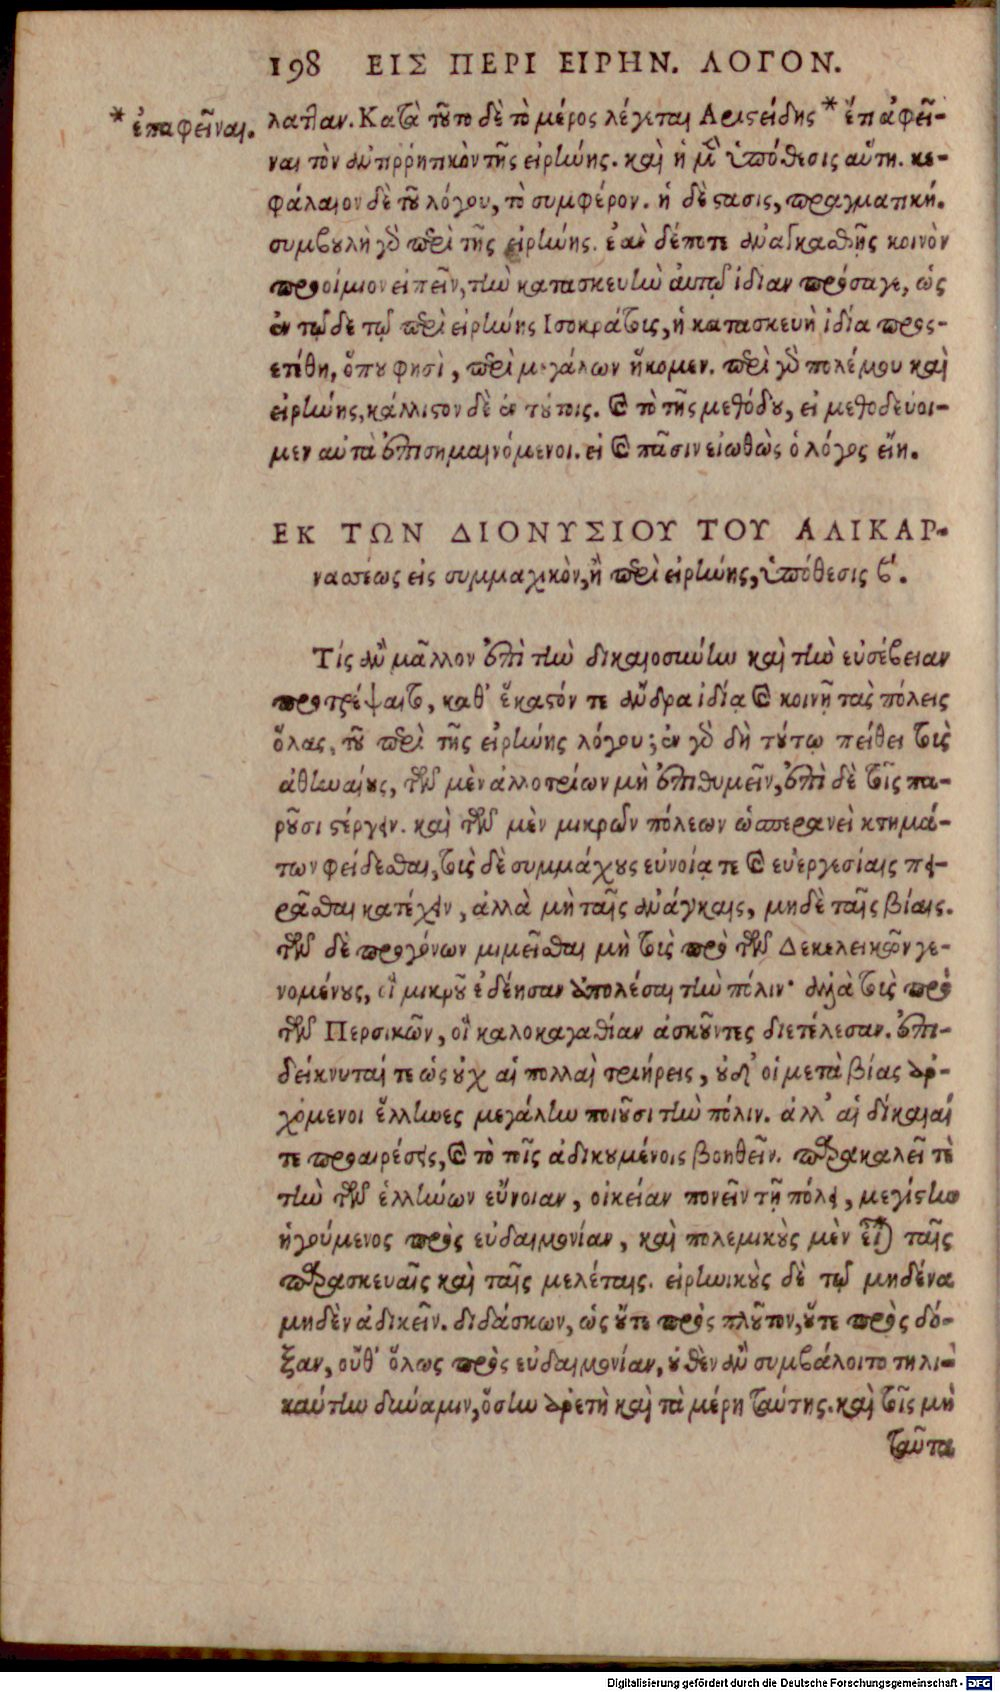 198 ΕΙΣ ΠΕΡΙ ΕΙΡΗΝ. ΛΟΓΟΝ.
* ἐπαφεῖναι.
λαττον. Κατὰ τοῦτο δὲ τὸ μέρος λέγεται Αριστείδης * ἔπ ἀφεῖ-
ναι τὸν ἀντιρρητικὸν τῆς εἰρήνης. καὶ ἡ μὲν ὑπόθεσις αὕτη. κε-
φάλαιον δὲ τοῦ λόγου, τὸ συμφέρον. ἡ δὲ στάσις, πραγματική.
συμβουλὴ γὰρ περὶ τῆς εἰρήνης. ἐὰν δέποτε ἀναγκασθῇς κοινὸν
προοίμιον εἰπεῖν, τὴν κατασκευὴν αὐτῷ ἰδίαν πρόσαγε, ὡς
ἐν τῷδε τῷ περὶ εἰρήνης Ισοκράτους, ἡ κατασκευὴ ἰδία προς-
ετέθη, ὅπου φησὶ, περὶ μεγάλων ἥκομεν. περὶ γὰρ πολέμου καὶ
εἰρήνης, κάλλιστον δὲ ἐν τούτοις. καὶ τὸ τῆς μεθόδου, εἰ μεθοδεύοι-
μεν αὐτὰ ἐπισημαινόμενοι. εἰ καὶ πᾶσιν εἰωθὼς ὁ λόγος εἴη.
ΕΚ ΤΩΝ ΔΙΟΝΥΣΙΟΥ ΤΟΥ ΑΛΙΚΑΡ-
νασσέως εἰς συμμαχικὸν, ἢ περὶ εἰρήνης, ὑπόθεσις β΄.
Τίς ἂν μᾶλλον ἐπὶ τὴν δικαιοσύνην καὶ τὴν εὐσέβειαν
προτρέψαιτο, καθ' ἕκαστόν τε ἄνδρα ἰδίᾳ καὶ κοινῇ τὰς πόλεις
ὅλας, τοῦ περὶ τῆς εἰρήνης λόγου; ἐν γὰρ δὴ τούτῳ πείθει τοὺς
ἀθηναίους, τῶν μὲν ἀλλοτρίων μὴ ἐπιθυμεῖν, ἐπὶ δὲ τοῖς πα-
ροῦσι στέργειν. καὶ τῶν μὲν μικρῶν πόλεων ὡσπερανεὶ κτημά-
των φείδεσθαι, τοὺς δὲ συμμάχους εὐνοίᾳ τε καὶ εὐεργεσίαις πει-
ρᾶσθαι κατέχειν, ἀλλὰ μὴ ταῖς ἀνάγκαις, μηδὲ ταῖς βίαις.
τῶν δὲ προγόνων μιμεῖσθαι μὴ τοὺς πρὸ τῶν Δεκελεικῶν γε-
νομένους, οἳ μικροῦ ἐδέησαν ἀπολέσαι τὴν πόλιν· ἀλλὰ τοὺς πρὸ
τῶν Περσικῶν, οἳ καλοκαγαθίαν ἀσκοῦντες διετέλεσαν. ἐπι-
δείκνυταί τε ὡς οὐχ αἱ πολλαὶ τριήρεις, οὐδ' οἱ μετὰ βίας ἀρ-
χόμενοι ἕλληνες μεγάλην ποιοῦσι τὴν πόλιν. ἀλλ' αἱ δίκαιαί
τε προαιρέσεις, καὶ τὸ τοῖς ἀδικουμένοις βοηθεῖν. παρακαλεῖ τε
τὴν τῶν ἑλλήνων εὔνοιαν, οἰκείαν ποιεῖν τῇ πόλει, μεγίστην
ἡγούμενος πρὸς εὐδαιμονίαν, καὶ πολεμικοὺς μὲν εἶναι ταῖς
παρασκευαῖς καὶ ταῖς μελέταις. εἰρηνικοὺς δὲ τῷ μηδένα
μηδὲν ἀδικεῖν. διδάσκων, ὡς οὔτε πρὸς πλοῦτον, οὔτε πρὸς δό-
ξαν, οὔθ' ὅλως πρὸς εὐδαιμονίαν, οὐθὲν ἂν συμβάλοιτο τηλι-
καύτην δύναμιν, ὅσην ἀρετὴ καὶ τὰ μέρη ταύτης. καὶ τοῖς μὴ
ταῦτα
Digitalisierung gefördert durch die Deutsche Forschungsgemeinschaft - DFG